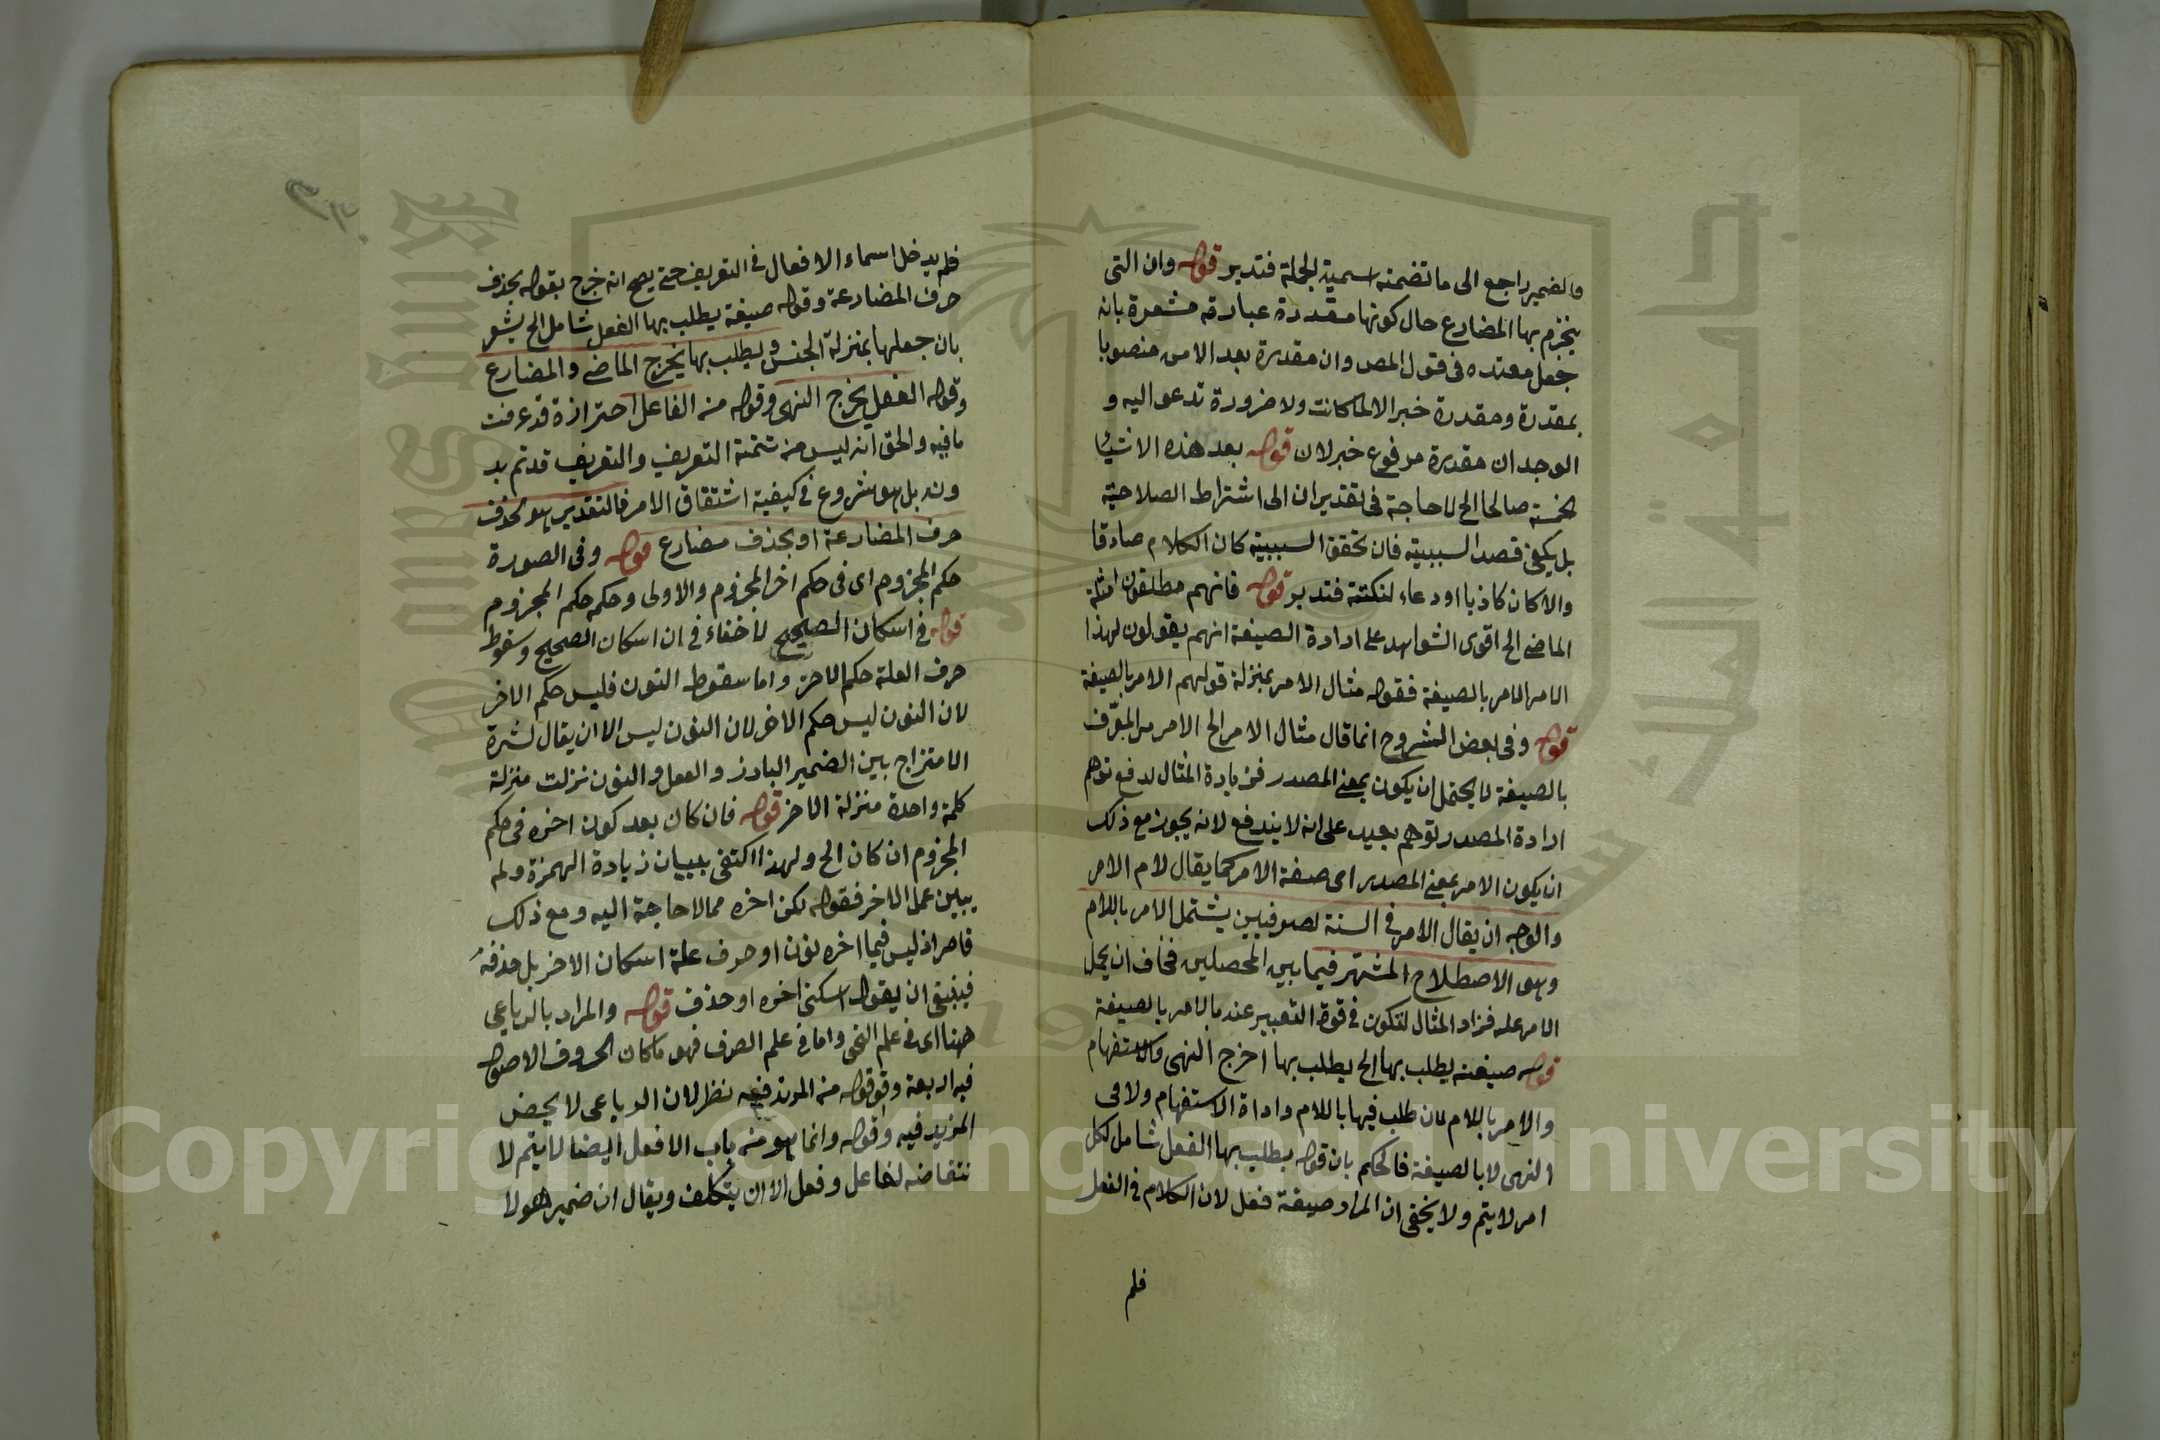 والضمير راجع الى ما تضمنه اسمية الجملة فتدبر قوله وان التى
ينجزم بها المضارع حال كونها مقدرة عبارته مشعرة بانه
جعل مقدرة فى قول المص وان مقدرة بعد الامر منصوبا
بمقدرة ومقدرة خبر الا لما كانت ولا ضرورة تدعو اليه و
الوجه ان مقدرة مرفوع خبر لان قوله بعد هذه الاشياء
الخمسة صالحا الخ لا حاجة فى تقدير ان الى اشتراط الصلاحية
بل يكفى قصد السببية فان تحقق السببية كان الكلام صادقا
والا كان كاذبا او دعاء لنكتة فتدبر قوله فانهم مطلقون امثلة
الماضى الخ اقوى الشواهد على ارادة الصيغة انهم يقولون لهذا
الامر الامر بالصيغة فقوله مثال الامر بمنزلة قولهم الامر بالصيغة
قوله وفى بعض الشروح انما قال مثال الامر الخ الامر المعرف
بالصيغة لا يحتمل ان يكون بمعنى المصدر فزيادة المثال لدفع توهم
ارادة المصدر توهم بعيد على انه لا يندفع لانه يجوز مع ذلك
ان يكون الامر بمعنى المصدر اى صيغة الامر كما يقال لام الامر
والوجه ان يقال الامر فى السنة لصوفيين يشتمل الامر باللام
وهو الاصطلاح المشتهر فيما بين المحصلين فخاف ان يحمل
الامر عليه فزاد المثال لتكون فى قوة التعبير عنه بالامر بالصيغة
قوله صيغة يطلب بها الخ يطلب بها اخرج النهى والاستفهام
والامر باللام لان طلب فيها باللام واداة الاستفهام ولا فى
النهى لا بالصيغة فالحكم بان قوله يطلب بها الفعل شامل لكل
امر لا يتم ولا يخفى ان المراد صيغة فعل لان الكلام فى الفعل
فلم
فلم يدخل اسماء الافعال فى التعريف حتى يصح انه خرج بقوله بحذف
حرف المضارعة وقوله صيغة يطلب بها الفعل شامل الخ يشعر
بان جعلها بمنزلة الجنس ويطلب بها يخرج الماضى والمضارع
وقوله الفعل يخرج النهى وقوله من الفاعل احترازة قد عرفت
ما فيه والحق انه ليس من تتمة التعريف والتعريف قد تم بد
ونه بل هو شروع فى كيفية اشتقاق الامر فالتقدير هو بحذف
حرف المضارعة او بحذف مضارع قوله وفى الصورة
حكم المجزوم اى فى حكم اخر المجزوم والاولى وحكمه حكم المجزوم
قوله فى اسكان الصحيح لا خفاء فى ان اسكان الصحيح وسقوط
حرف العلة حكم الاخر واما سقوط النون فليس حكم الاخر
لان النون ليس حكم الاخر لان النون ليس الا ان يقال لشدة
الامتزاج بين الضمير البارز والفعل والنون نزلت منزلة
كلمة واحدة منزلة الاخر قوله فان كان بعد كون اخره فى حكم
المجزوم ان كان الخ ولهذا اكتفى ببيان زيادة الهمزة ولم
يبين عمل الاخر فقوله لكن اخره مما لا حاجة اليه ومع ذلك
قاصر اذ ليس فيما اخره نون او حرف علة اسكان الاخر بل حذفه
فينبغى ان يقول اسكن اخره او حذف قوله والمراد بالرباعى
ههنا اى فى علم النحو واما فى علم الصرف فهو ما كان الحروف الاصول
فيه اربعة وقوله من المزيد فيه نظر لان الرباعى لا يخص
المزيد فيه وقوله وانما هو من باب الافعل ايضا لا يتم لا
نتقاضه لفاعل وفعل الا ان يتكلف ويقال ان ضمير هو لا
Copyright © King Saud University
جامعة الملك سعود
King Saud University